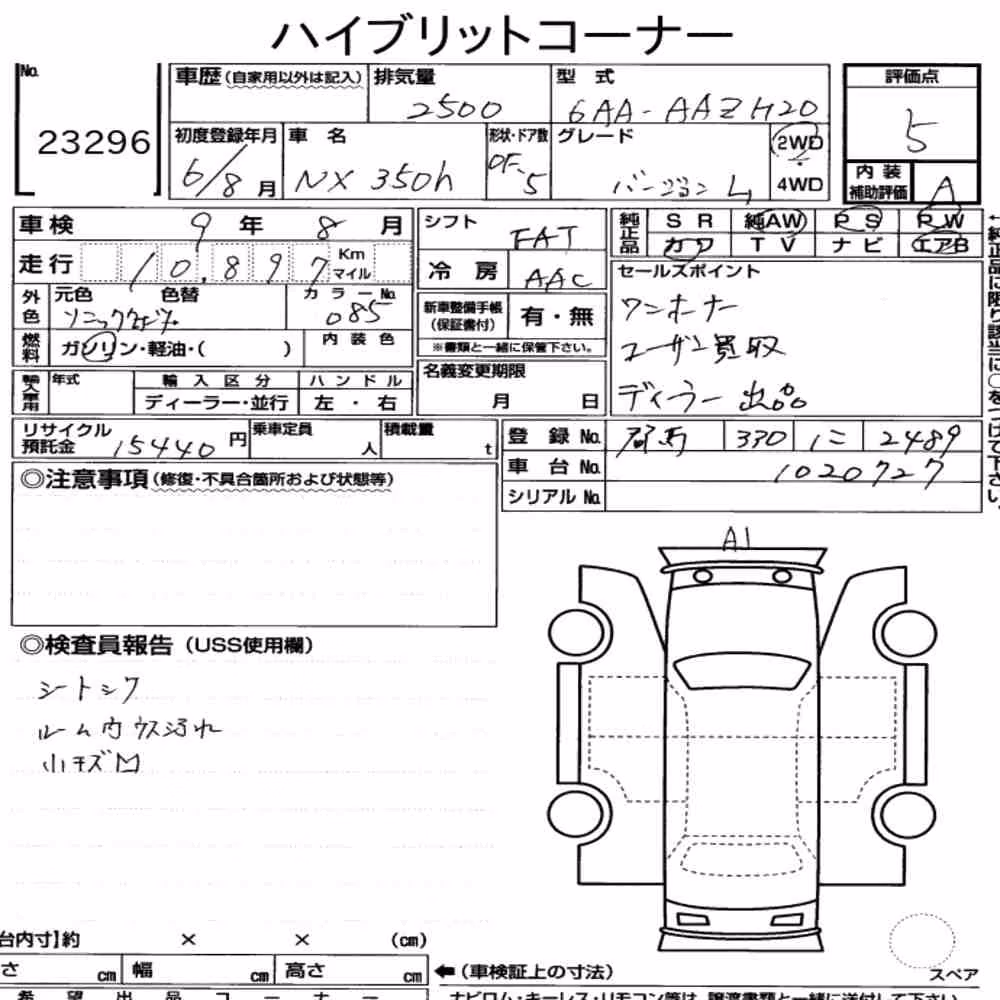 ハイブリットコーナー
No. 23296
車歴(自家用以外は記入) 排気量 2500 型式 6AA-AAZH20
初度登録年月 6/8月 車名 NX 350h 形状・ドア数 5 グレード バージョンL 2WD・4WD
評価点 5
内装補助評価 A
車検 9年 8月
走行 10,897 Km マイル
外色 元色 色替 カラーNo. 085
燃料 ガソリン・軽油・( ) 内装色
輸入車用 年式 輸入区分 ディーラー・並行 ハンドル 左・右
リサイクル預託金 15440円 乗車定員 人 積載量 t
シフト FAT
冷房 AAC
新車整備手帳(保証書付) 有・無
※書類と一緒に保管下さい。
名義変更期限 月 日
純正品 SR 純AW PS PW
カワ TV ナビ エアB
セールスポイント
ワンオーナー
ユーザー買取
ディーラー出品
登録No. 群馬 330 に 2489
車台No. 1020727
シリアルNo.
←純正品に限り該当に○をつけて下さい。
◎注意事項(修復・不具合箇所および状態等)
◎検査員報告(USS使用欄)
シートシワ
ルーム内ウス汚れ
小キズ凹
A1
台内寸】約 × × (cm)
さ cm 幅 cm 高さ cm
←(車検証上の寸法)
スペア
希望出品コーナー
ナビロム・キーレス・リモコン等は、譲渡書類と一緒に送付して下さい